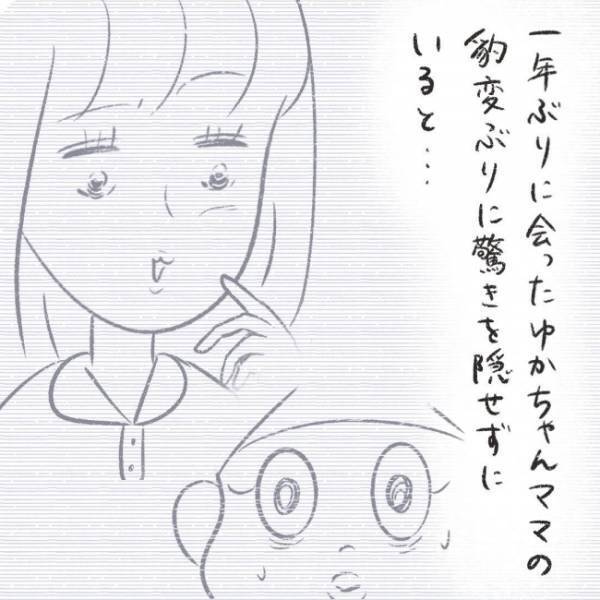 一年ぶりに会ったゆかちゃんママの
豹変ぶりに驚きを隠せずに
いると…